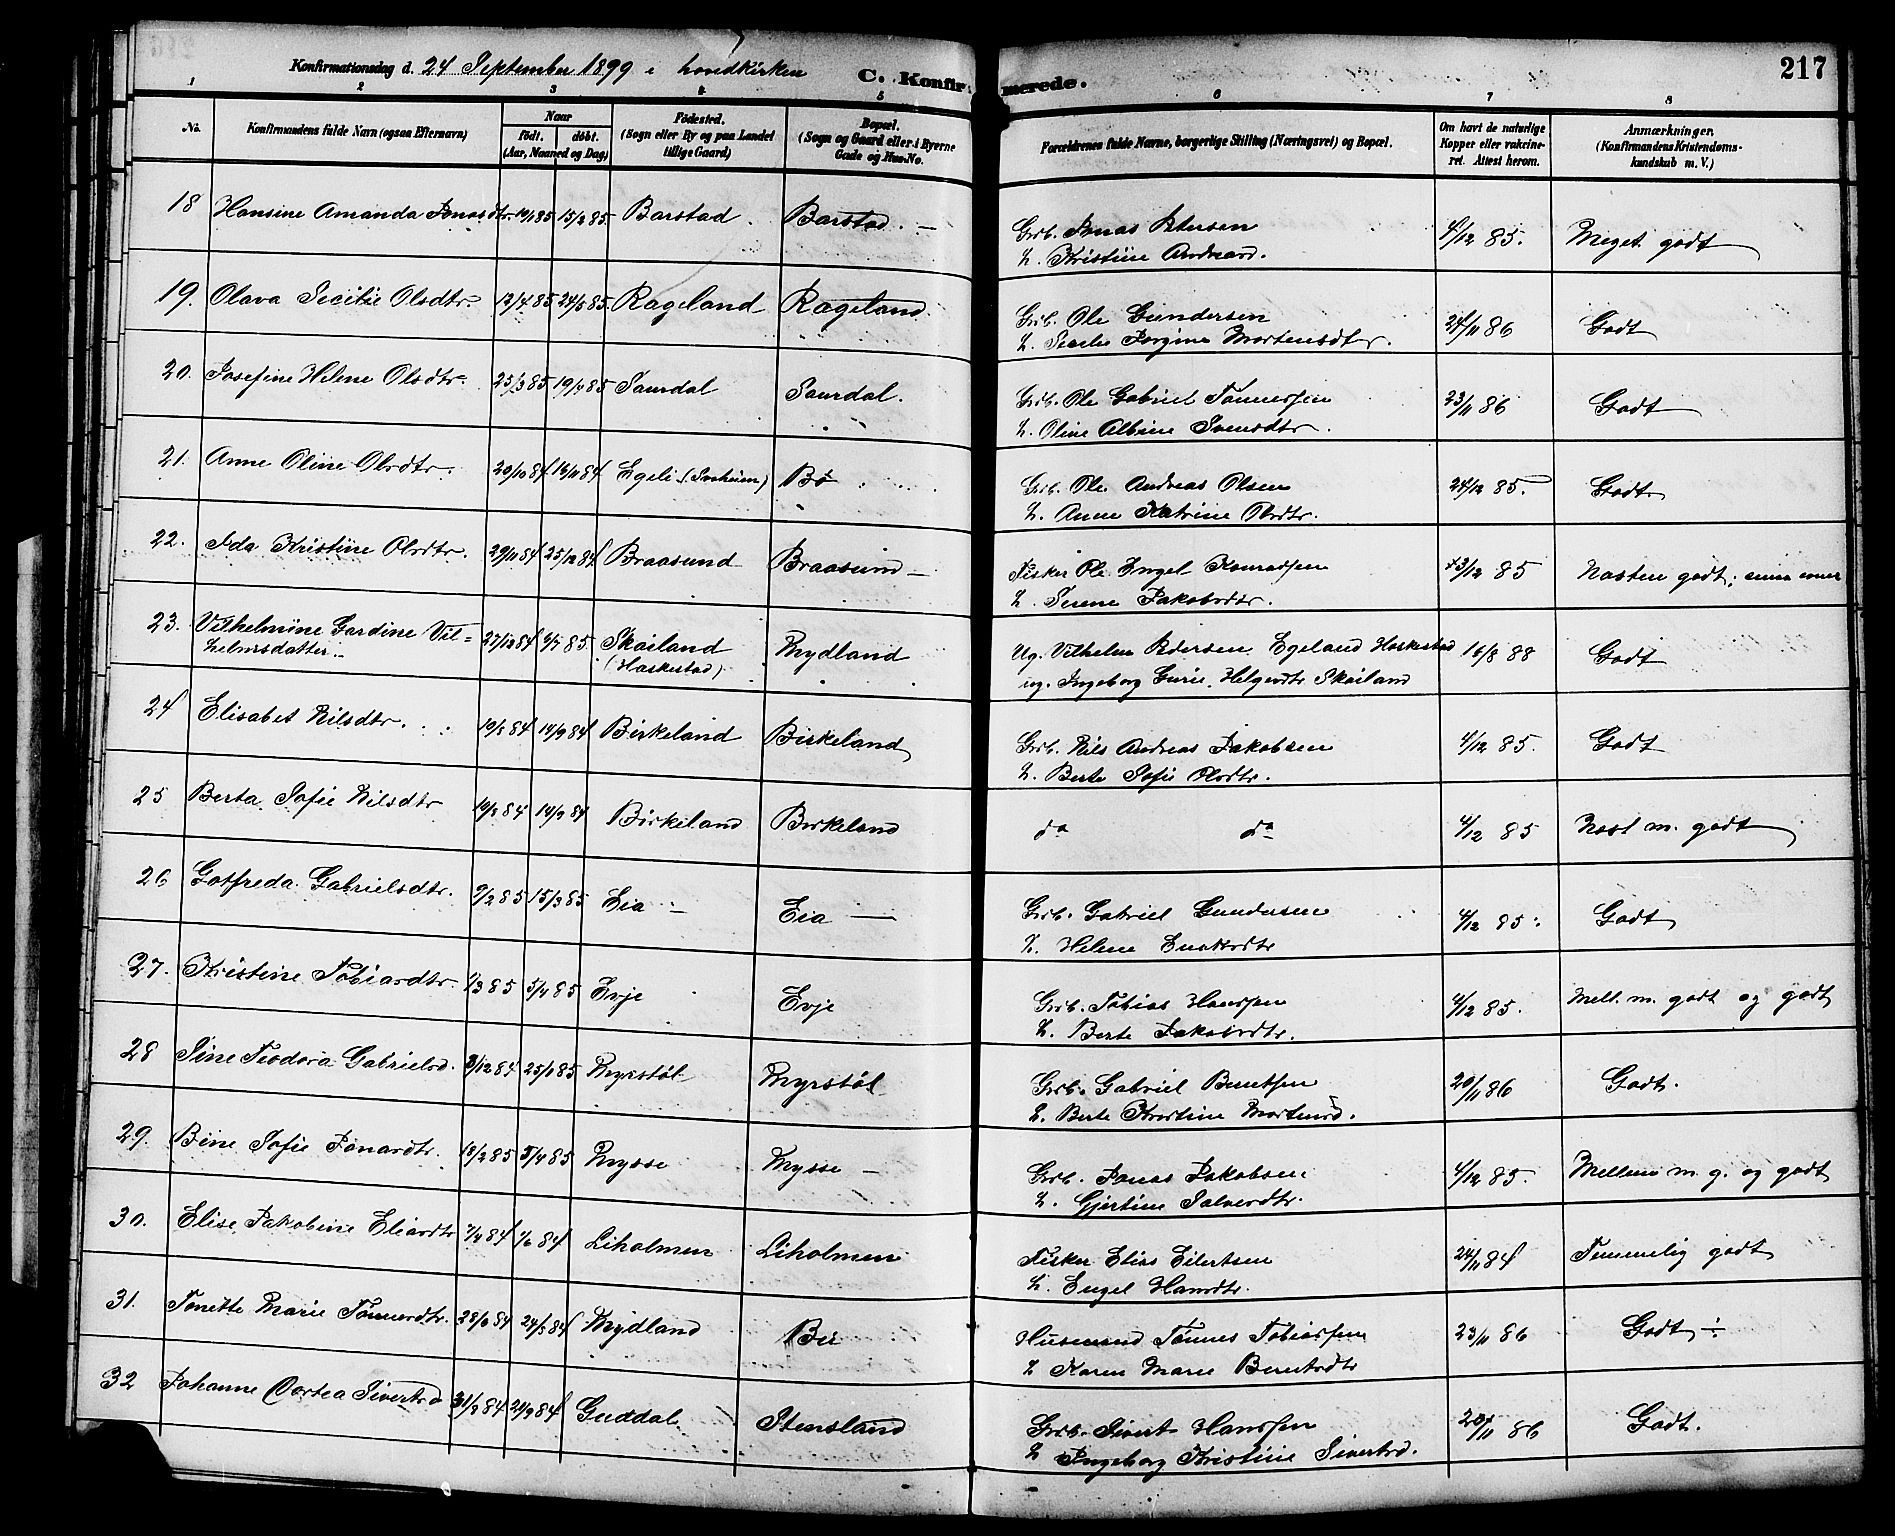 217
Konfirmationsdag d. 24 September 1899 i hovedkirken C. Konfirmerede.
1 2 3 4 5 6 7 8
No. Konfirmandens fulde Navn (ogsaa Efternavn) Naar født, døbt. (Aar, Maaned og Dag) Fødested. (Sogn eller By og paa Landet tillige Gaard) Bopæl. (Sogn og Gaard eller i Byerne Gade og Hus-No. Forældrenes fulde Navne, borgerlige Stilling (Næringsvei) og Bopæl. Om havt de naturlige Kopper eller vakcineret. Attest herom. Anmærkninger. (Konfirmandens Kristendomskundskab m. V.)
18 Hansine Amanda Jonasdtr 15/2 85. Barstad. Barstad. — Grb. Jonas Petersen 4/12 85. Meget godt
h. Kristine Andreasd.
19. Olava Secilie Olsdtr. 12/4 85 24/5 85. Rageland Rageland. Grb. Ole Gundersen 24/11 86 Godt
h. Secilie Jorgine Mortensdtr.
20. Josefine Helene Olsdtr. 25/3 85 19/4 85 Saurdal Saurdal. Grb. Ole Gabriel Tønnessen 23/11 86 Godt
h. Oline Albine Svensdtr.
21. Anne Oline Olsdtr. 20/10 84 16/11 84 Egeli (Sokn) Bø Grb. Ole Andreas Olsen 24/12 85. Godt.
h. Anne Katrine Olsdtr.
22. Ida Kristine Olsdtr. 29/11 84 25/12 84 Braasund Braasund — Fisker Ole Engel Konradsen 23/12 85 Næsten godt;
h. Serene Jakobsdtr.
23. Vilhelmine Gardine Vil= 27/12 84 85. Skailand Mydland Ug. Vilhelm Pedersen Egeland Heskestad 16/8 88 Godt
helmsdatter. (Heskestad) ug. Ingeborg Gurie Helgesdtr Skailand
24 Elisabet Nilsdtr. 10/8 84 14/9 84 Birkeland Birkeland Grb. Nils Andreas Jakobsen 4/12 85. Godt
h. Berte Sofie Olsdtr.
25 Berta Sofie Nilsdtr 10/8 84 14/9 84 Birkeland Birkeland do do 4/12 85 Næst m. godt
26 Gotfreda Gabrielsdtr. 9/2 85 15/3 85 Eia — Eia — Grb. Gabriel Gundersen 4/12 85. Godt
h. Helene
27. Kristine Tobiasdtr. 1/3 85 5/4 85 Evje Evje Grb. Tobias Hanssen 4/12 85. Mell. m. godt og godt
h. Berte Jakobsdtr.
28 Sine Teodora Gabrielsd. 3/12 84 25/1 85 Myrstøl Myrstøl Grb. Gabriel Berntsen 20/11 86 Godt.
h. Berte Kristine Mortensd.
29. Bine Sofie Jonasdtr. 18/2 85 5/4 85 Mysse Mysse — Grb. Jonas Jakobsen 4/12 85. Mellem m. g. og godt
h. Gjertine Salvesdtr.
30. Elise Jakobine Eliasdtr 7/4 84 1/6 84 Liholmen Liholmen Fisker Elias Eilertsen 24/11 84 Temmelig godt
h. Engel Hansdtr.
31. Tonette Marie Tønnesdtr. 24/8 84 Mydland Bø Husmand Tønnes Tobiassen 23/11 86 Godt ÷
h Karen Marie Berntsdtr
32 Johanne Dortea Sivertsd 31/8 84 21/9 84 Guddal Stensland Grb. Sivert Hanssen 20/11 86 Godt.
h Ingeborg Kristine Sivertsd.